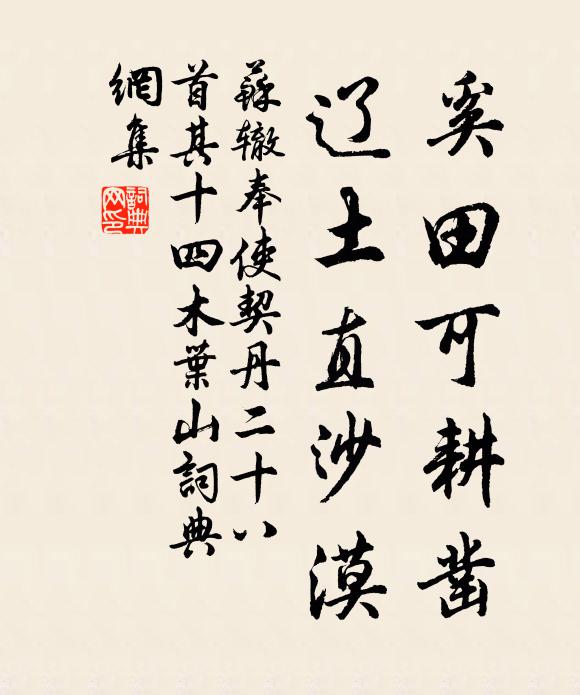 奚田可耕凿
辽土直沙漠
蘇辙奉使契丹二十八
首其十四木葉山詞典
網集
詞典網印